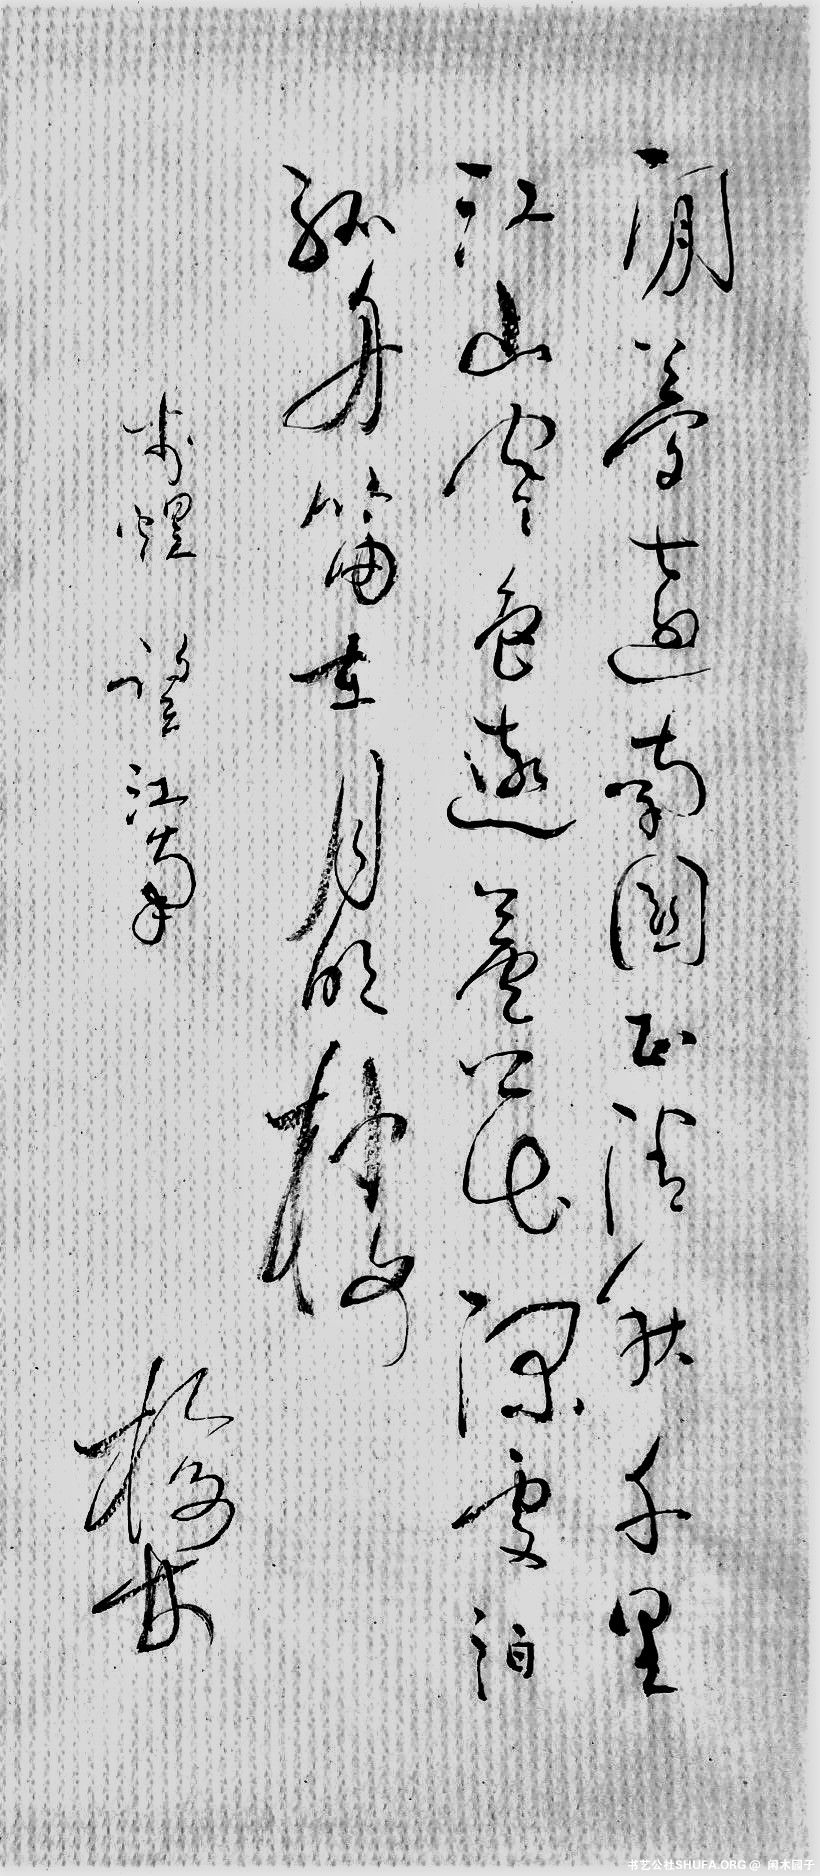 閒夢遠南國正清秋千里
江山寒色遠蘆花深處泊
孤舟笛在月明樓
李煜 望江南
书艺公社SHUFA.ORG @ 闲木园子